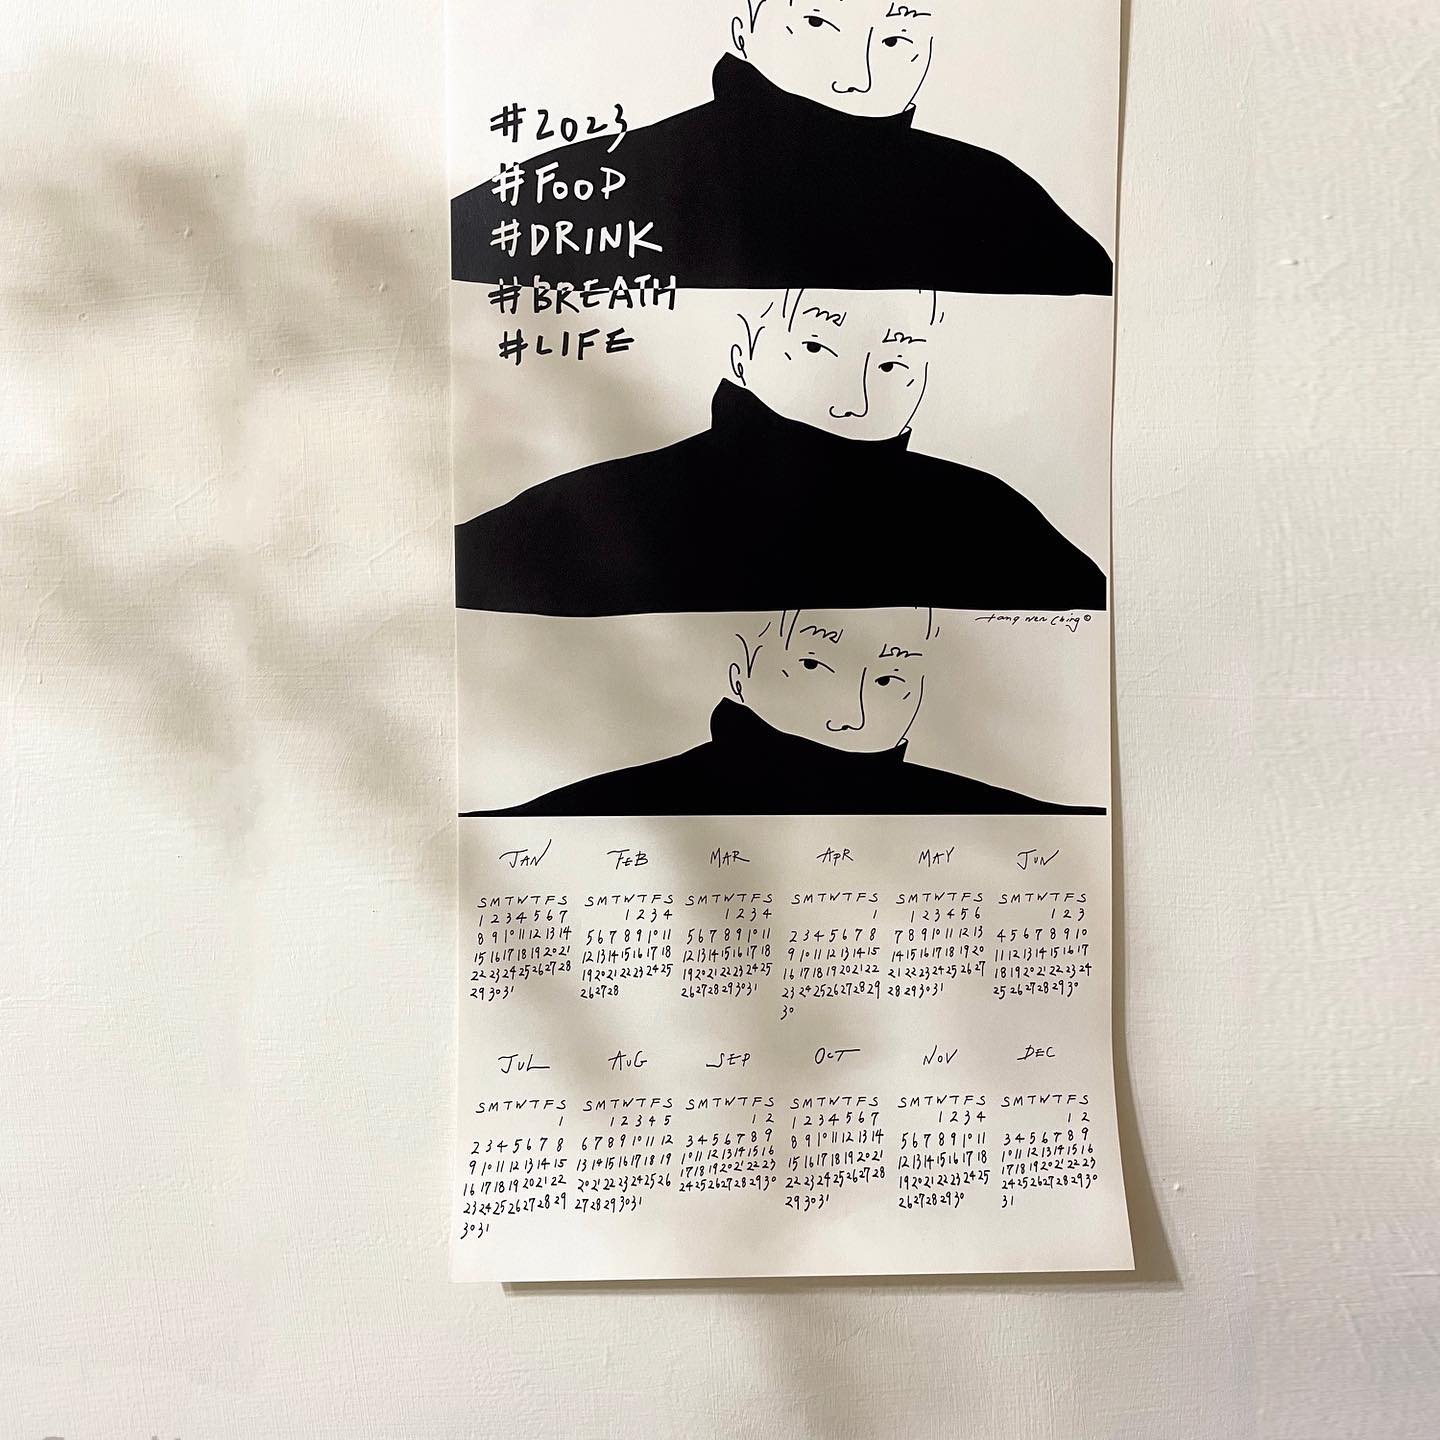 #2023
#FOOD
#DRINK
#BREATH
#LIFE
tang wen ching ©
JAN FEB MAR APR MAY JUN
S M T W T F S S M T W T F S S M T W T F S S M T W T F S S M T W T F S S M T W T F S
1 2 3 4 5 6 7 1 2 3 4 1 2 3 4 1 1 2 3 4 5 6 1 2 3
8 9 10 11 12 13 14 5 6 7 8 9 10 11 5 6 7 8 9 10 11 2 3 4 5 6 7 8 7 8 9 10 11 12 13 4 5 6 7 8 9 10
15 16 17 18 19 20 21 12 13 14 15 16 17 18 12 13 14 15 16 17 18 9 10 11 12 13 14 15 14 15 16 17 18 19 20 11 12 13 14 15 16 17
22 23 24 25 26 27 28 19 20 21 22 23 24 25 19 20 21 22 23 24 25 16 17 18 19 20 21 22 21 22 23 24 25 26 27 18 19 20 21 22 23 24
29 30 31 26 27 28 26 27 28 29 30 31 23 24 25 26 27 28 29 28 29 30 31 25 26 27 28 29 30
30
JUL AUG SEP OCT NOV DEC
S M T W T F S S M T W T F S S M T W T F S S M T W T F S S M T W T F S S M T W T F S
1 1 2 3 4 5 1 2 1 2 3 4 5 6 7 1 2 3 4 1 2
2 3 4 5 6 7 8 6 7 8 9 10 11 12 3 4 5 6 7 8 9 8 9 10 11 12 13 14 5 6 7 8 9 10 11 3 4 5 6 7 8 9
9 10 11 12 13 14 15 13 14 15 16 17 18 19 10 11 12 13 14 15 16 15 16 17 18 19 20 21 12 13 14 15 16 17 18 10 11 12 13 14 15 16
16 17 18 19 20 21 22 20 21 22 23 24 25 26 17 18 19 20 21 22 23 22 23 24 25 26 27 28 19 20 21 22 23 24 25 17 18 19 20 21 22 23
23 24 25 26 27 28 29 27 28 29 30 31 24 25 26 27 28 29 30 29 30 31 26 27 28 29 30 24 25 26 27 28 29 30
30 31 31